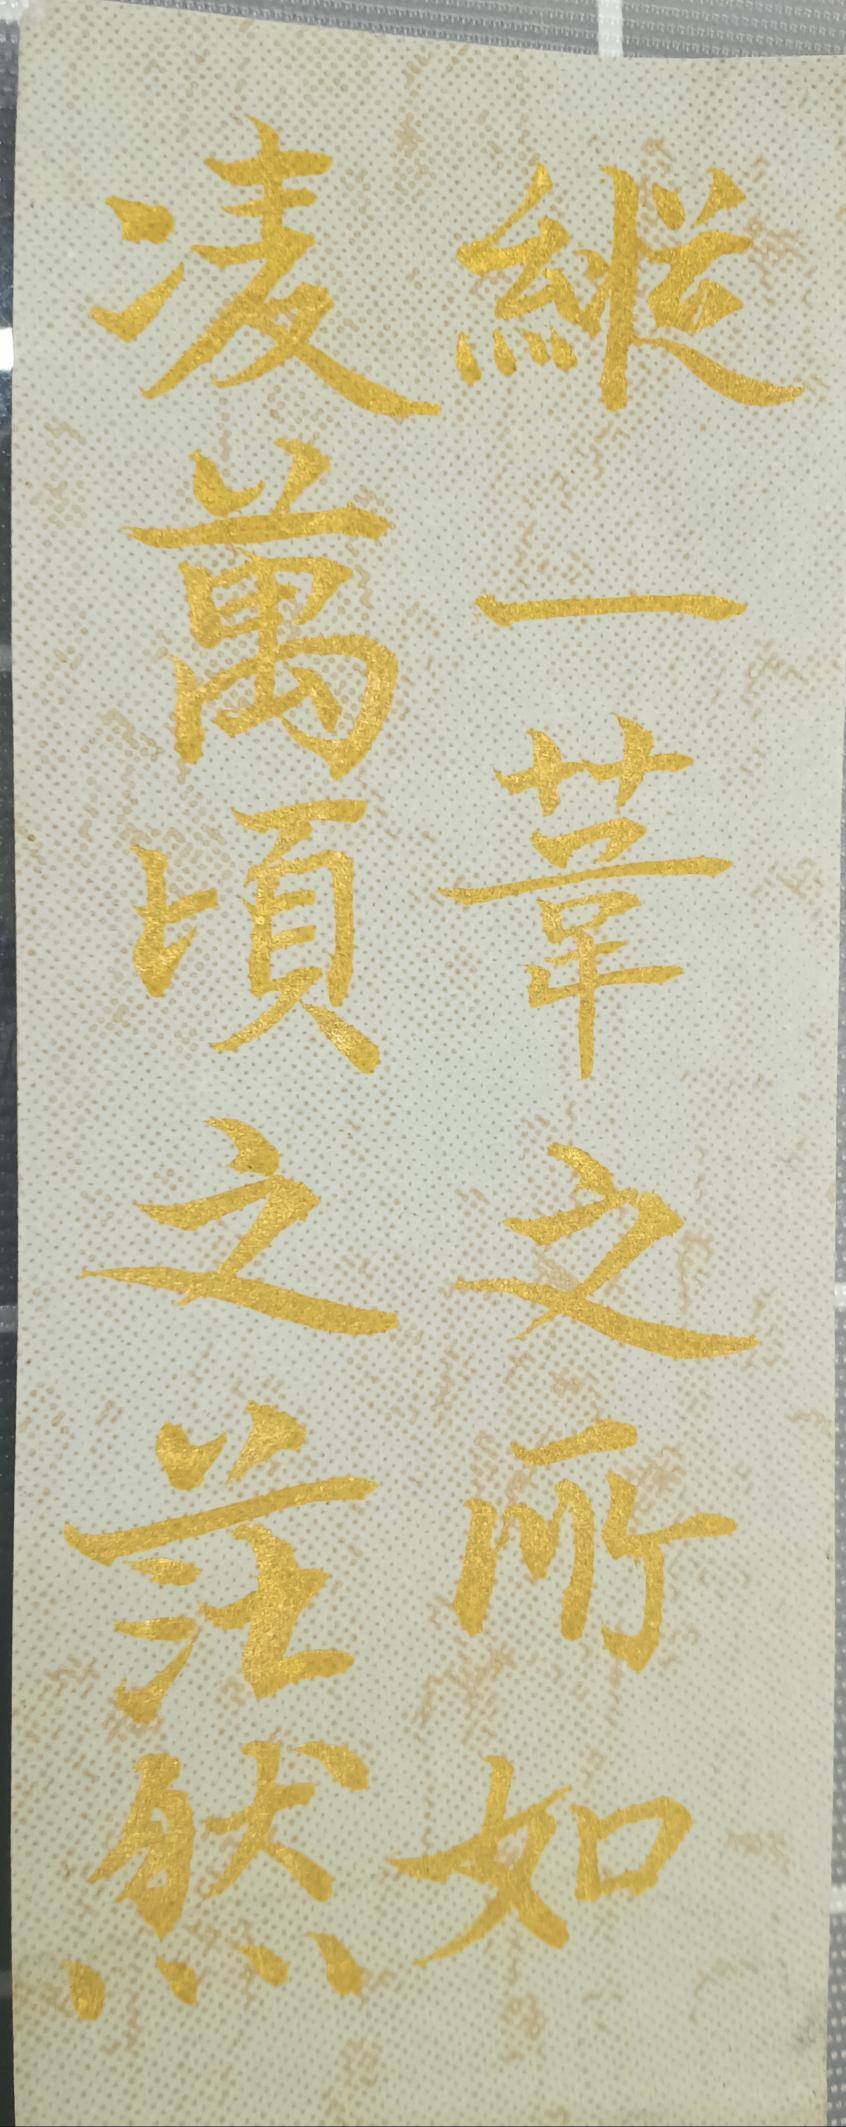 縱一葦之所如
凌萬頃之茫然